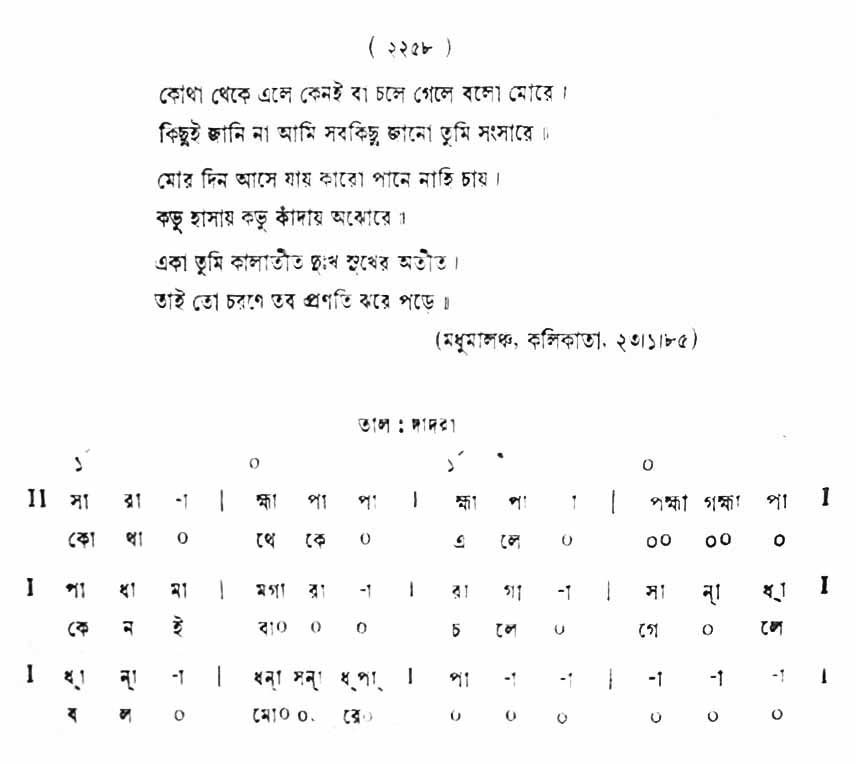 ( ২২৫৮ )
কোথা থেকে এলে কেনই বা চলে গেলে বলো মোরে ।
কিছুই জানি না আমি সবকিছু জানো তুমি সংসারে ॥
মোর দিন আসে যায় কারো পানে নাহি চায় ।
কভু হাসায় কভু কাঁদায় অঝোরে ॥
একা তুমি কালাতীত দুঃখ সুখের অতীত ।
তাই তো চরণে তব প্রণতি ঝরে পড়ে ॥
(মধুমালঞ্চ, কলিকাতা, ২৩।১।৮৫)
তাল : দাদরা
১´ ০ ১´ ০
II সা রা -া | হ্মা পা পা I হ্মা পা া | পহ্মা গহ্মা পা I
কো থা ০ থে কে ০ এ লে ০ ০০ ০০ ০
I পা ধা মা | মগা রা -া I রা গা -া | সা ন্া ধ্া I
কে ন ই বা০ ০ ০ চ লে ০ গে ০ লে
I ধ্া ন্া -া | ধন্া সন্া ধ্পা্ I পা -া -া | -া -া -া I
ব ল ০ মো০ ০. রে০ ০ ০ ০ ০ ০ ০